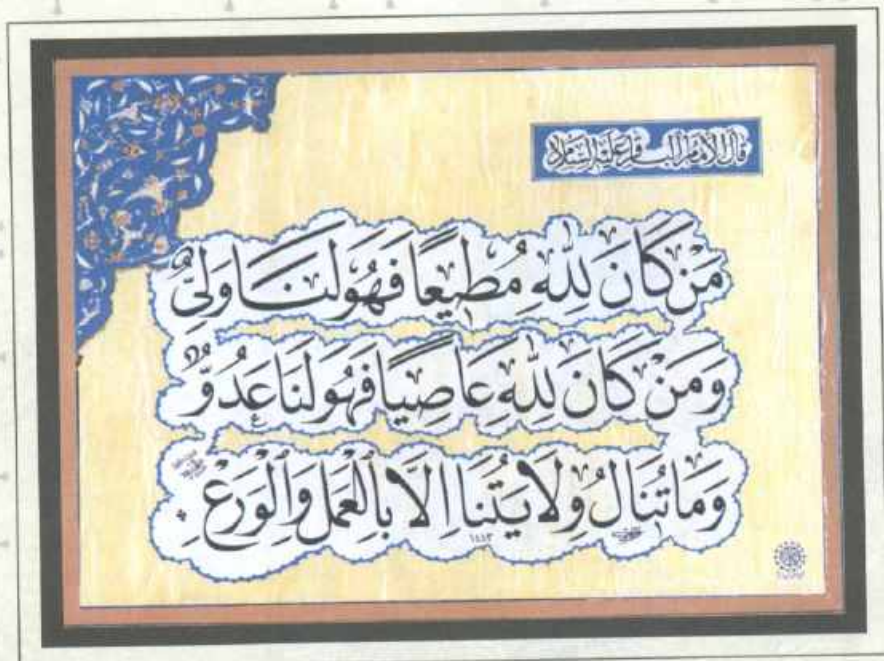 قال الإمام الباقر عليه السلام
مَنْ كَانَ لِلّٰهِ مُطيعًا فَهُوَ لَنَا وَلِيٌّ
وَمَنْ كَانَ لِلّٰهِ عَاصِيًا فَهُوَ لَنَا عَدُوٌّ
وَمَا تُنَالُ وِلَايَتُنَا اِلَّا بِالْعَمَلِ وَالْوَرَعِ
١٤١٣